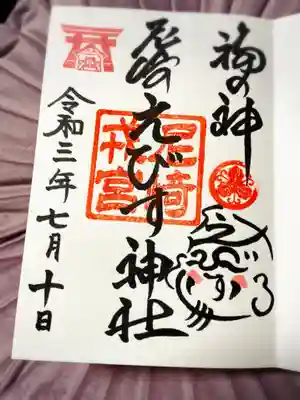 福の神
尼崎えびす神社
尼崎
戎宮
令和三年七月十日